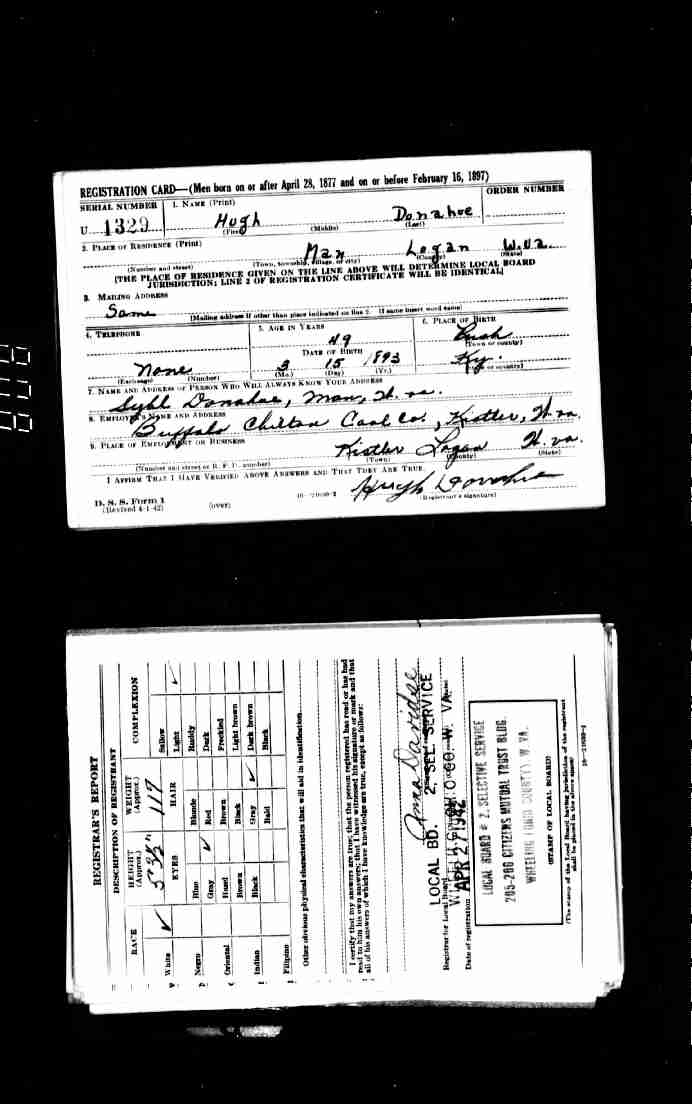 REGISTRATION CARD—(Men born on or after April 28, 1877 and on or before February 16, 1897)
SERIAL NUMBER 1. NAME (Print) ORDER NUMBER
U 1329 Hugh Donahoe
(First) (Middle) (Last)
2. PLACE OF RESIDENCE (Print)
Man Logan W.Va.
(Number and street) (Town, township, village, or city) (County) (State)
[THE PLACE OF RESIDENCE GIVEN ON THE LINE ABOVE WILL DETERMINE LOCAL BOARD
JURISDICTION; LINE 2 OF REGISTRATION CERTIFICATE WILL BE IDENTICAL]
3. MAILING ADDRESS
Same
[Mailing address if other than place indicated on line 2. If same insert word same]
4. TELEPHONE 5. AGE IN YEARS 6. PLACE OF BIRTH
49
(Town or county)
DATE OF BIRTH
None 3 15 1893 Ky.
(Exchange) (Number) (Mo.) (Day) (Yr.) (State or country)
7. NAME AND ADDRESS OF PERSON WHO WILL ALWAYS KNOW YOUR ADDRESS
Sybl Donahoe, Man, W. va.
8. EMPLOYER'S NAME AND ADDRESS
Buffalo Chilton Coal Co., Kistler, W. va.
9. PLACE OF EMPLOYMENT OR BUSINESS
Kistler Logan W. va.
(Number and street or R. F. D. number) (Town) (County) (State)
I AFFIRM THAT I HAVE VERIFIED ABOVE ANSWERS AND THAT THEY ARE TRUE.
Hugh Donahoe
D. S. S. Form 1
(Revised 4-1-42) (over) 16—21630-2 (Registrant's signature)
REGISTRAR'S REPORT
DESCRIPTION OF REGISTRANT
RACE HEIGHT (Approx.) WEIGHT (Approx.) COMPLEXION
White ✓ 117 Sallow
EYES HAIR Light ✓
Negro Blue Blonde Ruddy
Gray ✓ Red Dark
Oriental Hazel Brown Freckled
Brown Black Light brown
Indian Black Gray ✓ Dark brown
Bald Black
Filipino
Other obvious physical characteristics that will aid in identification
I certify that my answers are true; that the person registered has read or has had
read to him his own answers; that I have witnessed his signature or mark and that
all of his answers of which I have knowledge are true, except as follows:
Anna Davidse
LOCAL BD. 2, SEL. SERVICE
Registrar for Local Board
APR 27 1942
Date of registration
LOCAL BOARD # 2, SELECTIVE SERVICE
CITIZENS MUTUAL TRUST BLDG.
WHEELING (OHIO COUNTY) W. VA.
(STAMP OF LOCAL BOARD)
(The stamp of the Local Board having jurisdiction of the registrant
shall be placed in the above space)